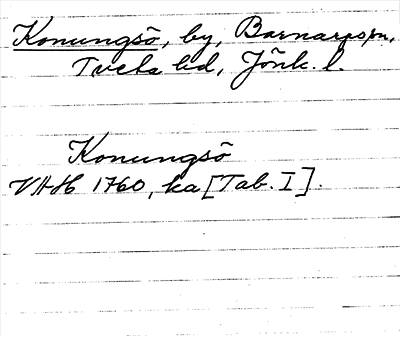 Konungsö, by, Barnarps sn,
Tveta hd, Jönk. l.
Konungsö
VAH 1760, ka [Tab. I].